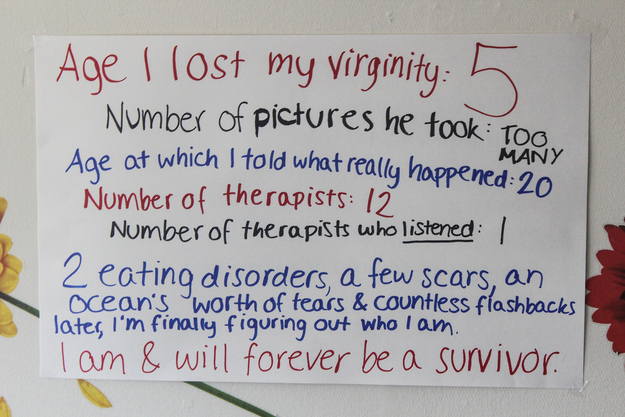 Age I lost my virginity: 5
Number of pictures he took: TOO
MANY
Age at which I told what really happened: 20
Number of therapists: 12
Number of therapists who listened: 1
2 eating disorders, a few scars, an
ocean's worth of tears & countless flashbacks
later, I'm finally figuring out who I am.
I am & will forever be a survivor.